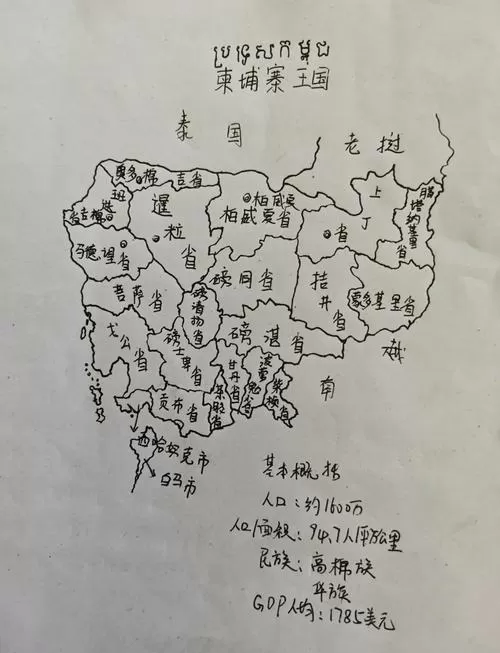 ប្រទេសកម្ពុជា
柬埔寨王国
泰国
老挝
奥多棉吉省
班迭棉吉省
暹粒省
柏威夏
柏威夏省
上丁省
腊塔纳基里省
马德望省
磅同省
桔井省
蒙多基里省
菩萨省
磅清扬省
戈公省
磅士卑省
磅湛省
越南
贡布省
茶胶省
甘丹省
波萝勉省
柴桢省
西哈努克市
白马市
基本概括
人口:约1600万
人口/面积:94.7人/平方公里
民族:高棉族
华族
GDP人均:1785美元